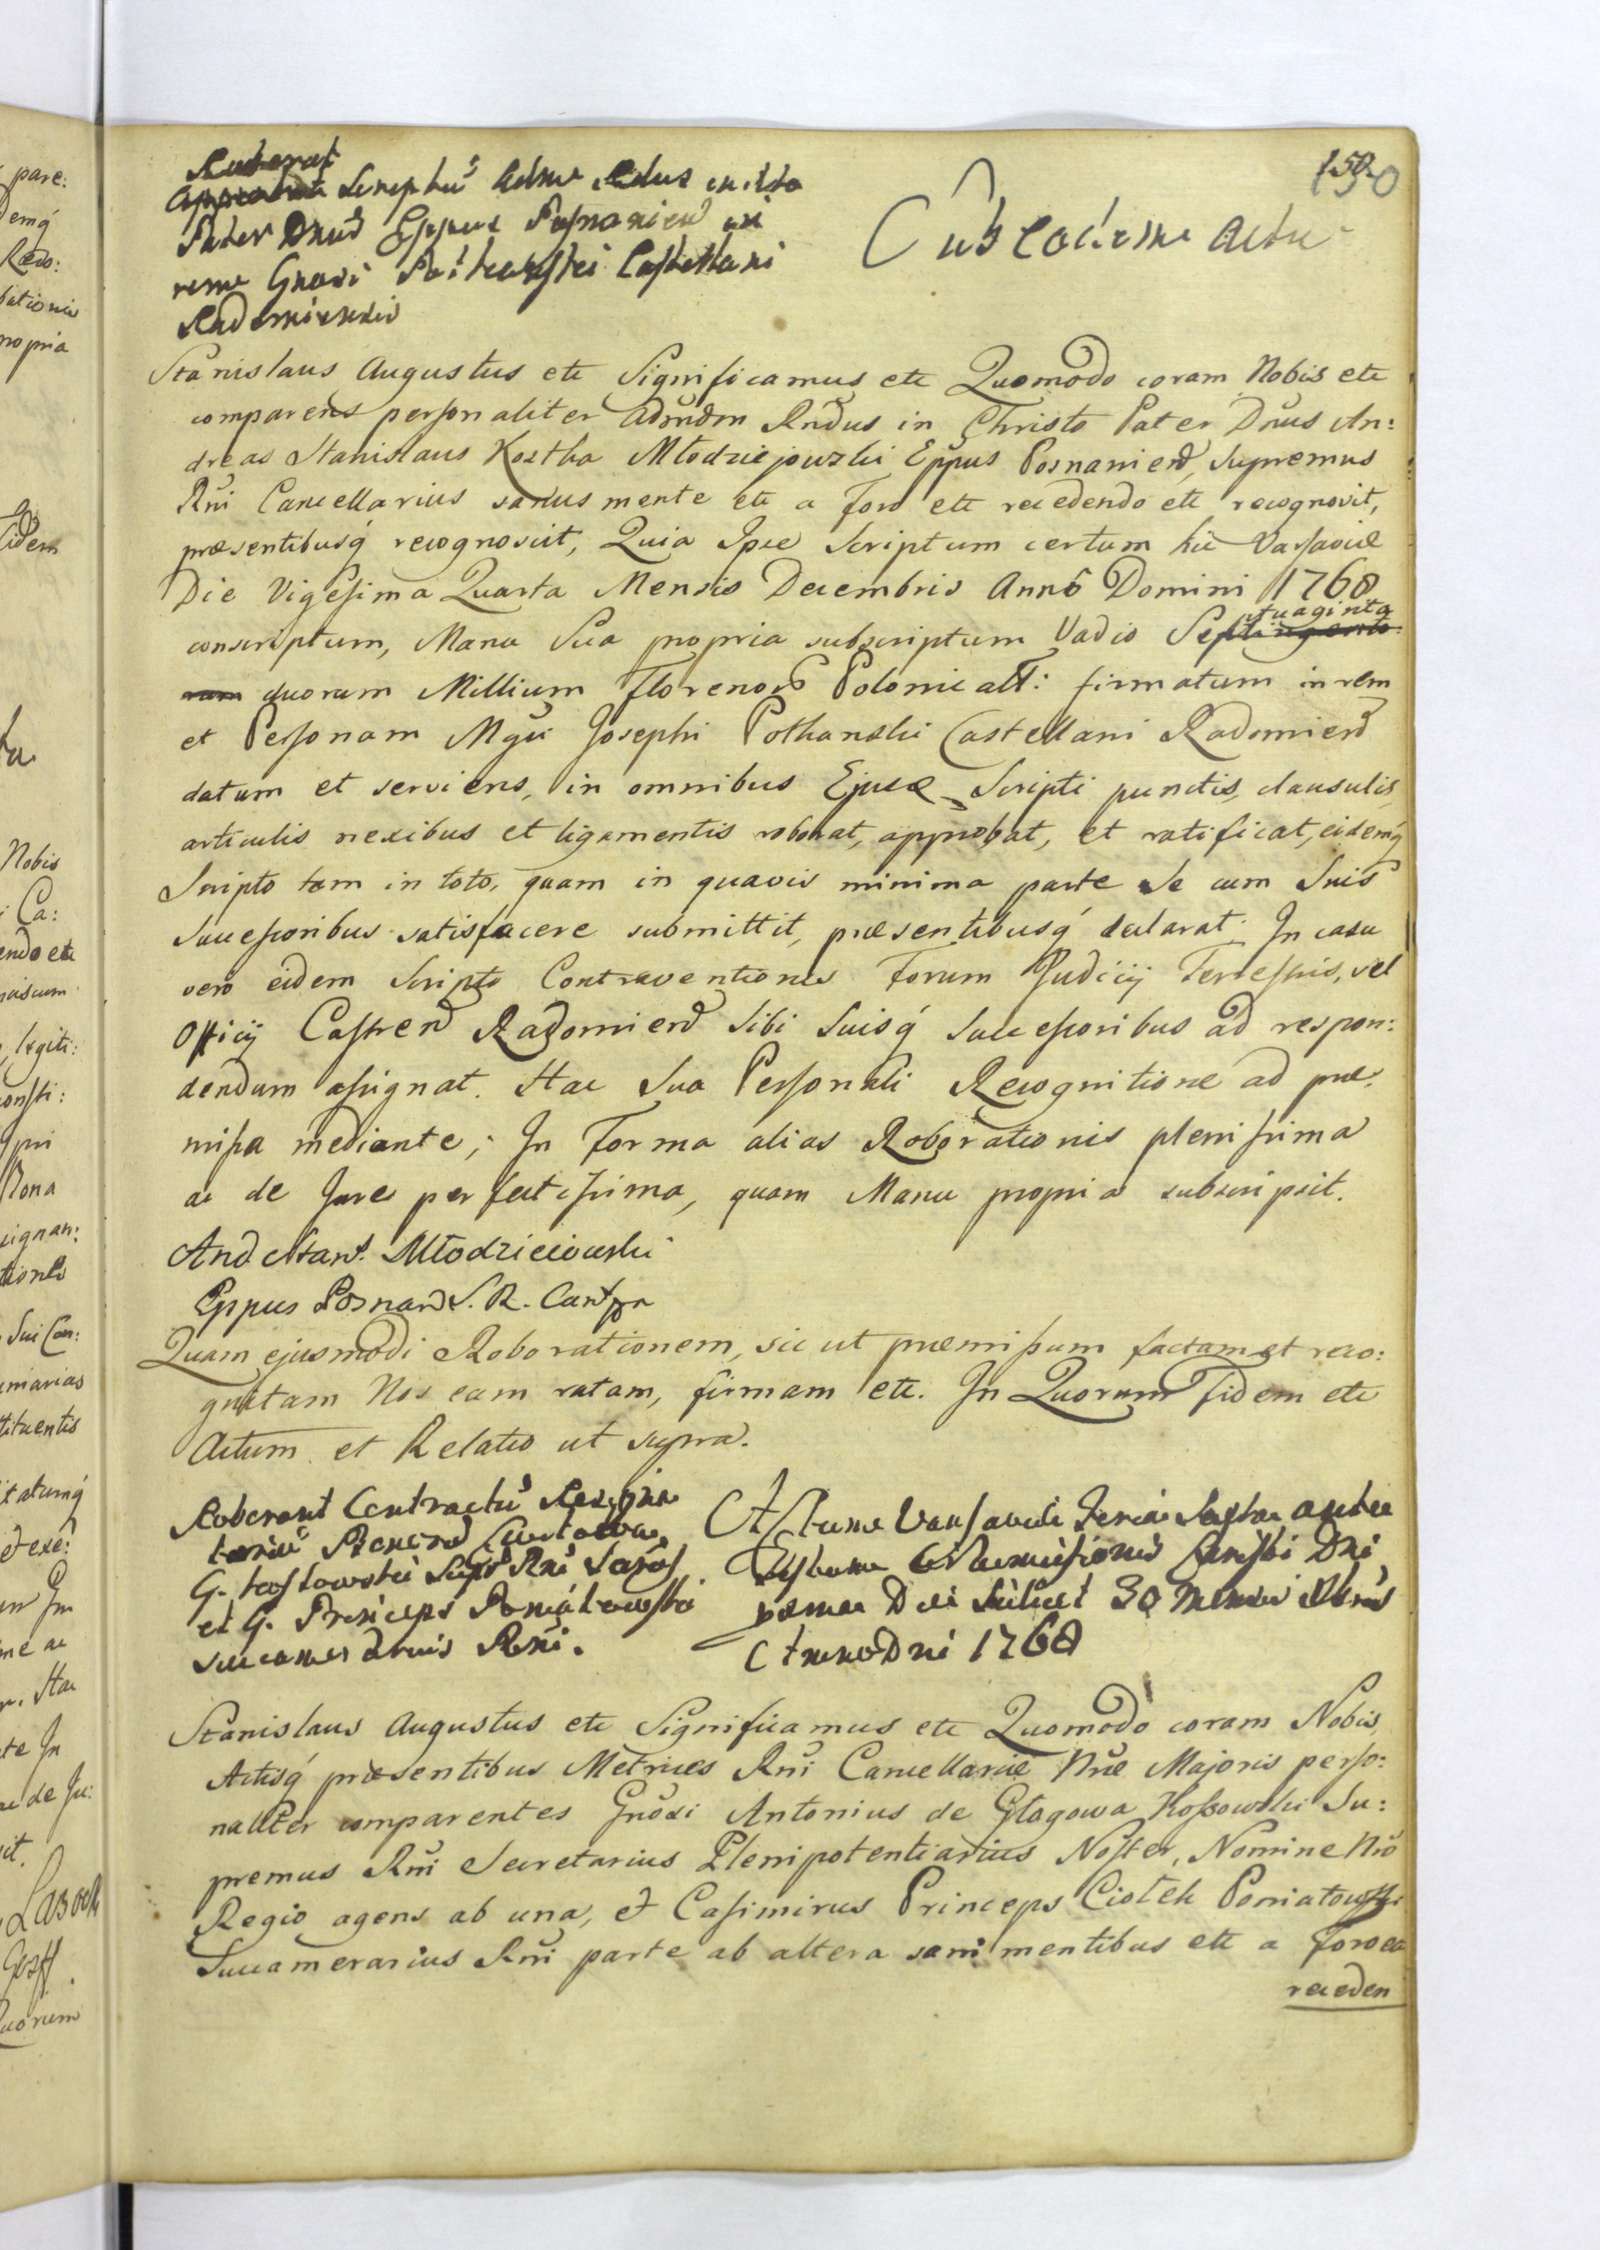 150
Roborat
Approbat Scriptu Adm Rdus in Xto
Pater Dnus Eppus Posnanien in
rem Gnosi Potkanski Castellani
Radomiensis
Sub eodem actu
Stanislaus Augustus etc Significamus etc Quomodo coram Nobis etc
comparens personaliter Admdm Rndus in Christo Pater Dnus An:
dreas Stanislaus Kostka Młodziejowski Eppus Posnanien, Supremus
Rni Cancellarius sanus mente etc a foro etc recedendo etc recognovit,
præsentibusq recognoscit, Quia Ipse Scriptum certum hic Varsaviæ
Die Vigesima Quarta Mensis Decembris Anno Domini 1768
conscriptum, Manu Sua propria subscriptum Vadio Septuaginta
duorum Millium Florenor Polonicall: firmatum in rem
et Personam Mgci Josephi Pothanski Castellani Radomien
datum et serviens, in omnibus Ejus Scripti punctis, clausulis,
articulis nexibus et ligamentis roborat, approbat, et ratificat, eidemq
Scripto tam in toto, quam in quavis minima parte Se cum Suis
Successoribus satisfacere submittit, præsentibusq declarat. In casu
vero eidem Scripto Contraventionis Forum Judicij Terrestris, vel
Officij Castren Radomien Sibi Suisq Successoribus ad respon:
dendum assignat. Hac Sua Personali Recognitione ad præ:
missa mediante; In Forma alias Roborationis plenissima
ac de Jure perfectissima, quam Manu propria subscripsit.
And. Stan. Młodzieiowski
Eppus Posnan S. R. Canr
Quam ejusmodi Roborationem, sic ut præmissum factam et reco:
gnitam Nos eam ratam, firmam etc. In Quorum Fidem etc
Actum et Relatio ut supra.
Roborant Contractu
G. Kossowski Rni
et G. Princeps Poniatowski
Succamerarius Rni.
Actum Varsaviæ Feria Sexta ante
Festum Circumcisionis Christi Dni
Die Scilicet 30 Mensis Xbris
Anno Dni 1768
Stanislaus Augustus etc Significamus etc Quomodo coram Nobis,
Actisq præsentibus Metrices Rni Cancellariæ Nræ Majoris perso:
naliter comparentes Gnosi Antonius de Głogowa Kossowski Su:
premus Rni Secretarius Plenipotentiarius Noster, Nomine Nro
Regio agens ab una, et Casimirus Princeps Ciołek Poniatowski
Succamerarius Rni parte ab altera sani mentibus etc a foro etc
receden